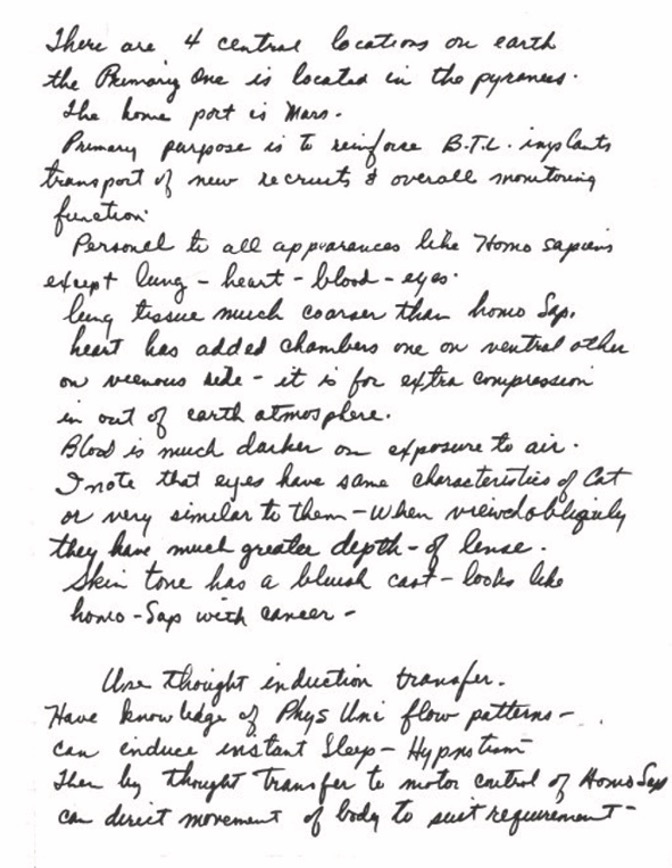 There are 4 central locations on earth
the Primary One is located in the pyranees.
The home port is Mars.
Primary purpose is to reinforce B.T.L. implants
transport of new recruits & overall monitoring
function.
Personel to all appearances like Homo sapiens
except lung - heart - blood - eyes.
lung tissue much coarser than homo Sap.
heart has added chambers one on ventral other
on veenous side - it is for extra compression
in out of earth atmosphere.
Blood is much darker on exposure to air.
I note that eyes have same characteristics of Cat
or very similar to them - when viewed obliquily
they have much greater depth - of lense.
Skin tone has a bluish cast - looks like
homo - Sap with cancer -
Use thought induction transfer.
Have knowledge of Phys Uni flow patterns -
can enduce instant Sleep - Hypnotism
Then by thought transfer to motor control of Homo Sap
can direct movement of body to suit requirement -